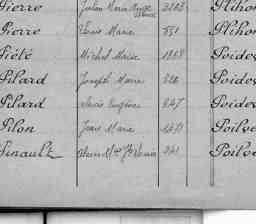 Pierre Julien Marie Ange 3103 Plihon
Pierre Louis Marie 551 Plihon
Piété Michel Marie 1808 Poidev
Pilard Joseph Marie Poidev
Pilard Louis Eugène 847 Poidev
Pilon Jean Marie 1471 Poilve
Pinault Poilve